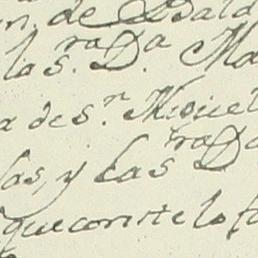 n. de Bald
la s.ra D.a Ma
a de s.n Miguel
las, y las ra D
que conste lo f